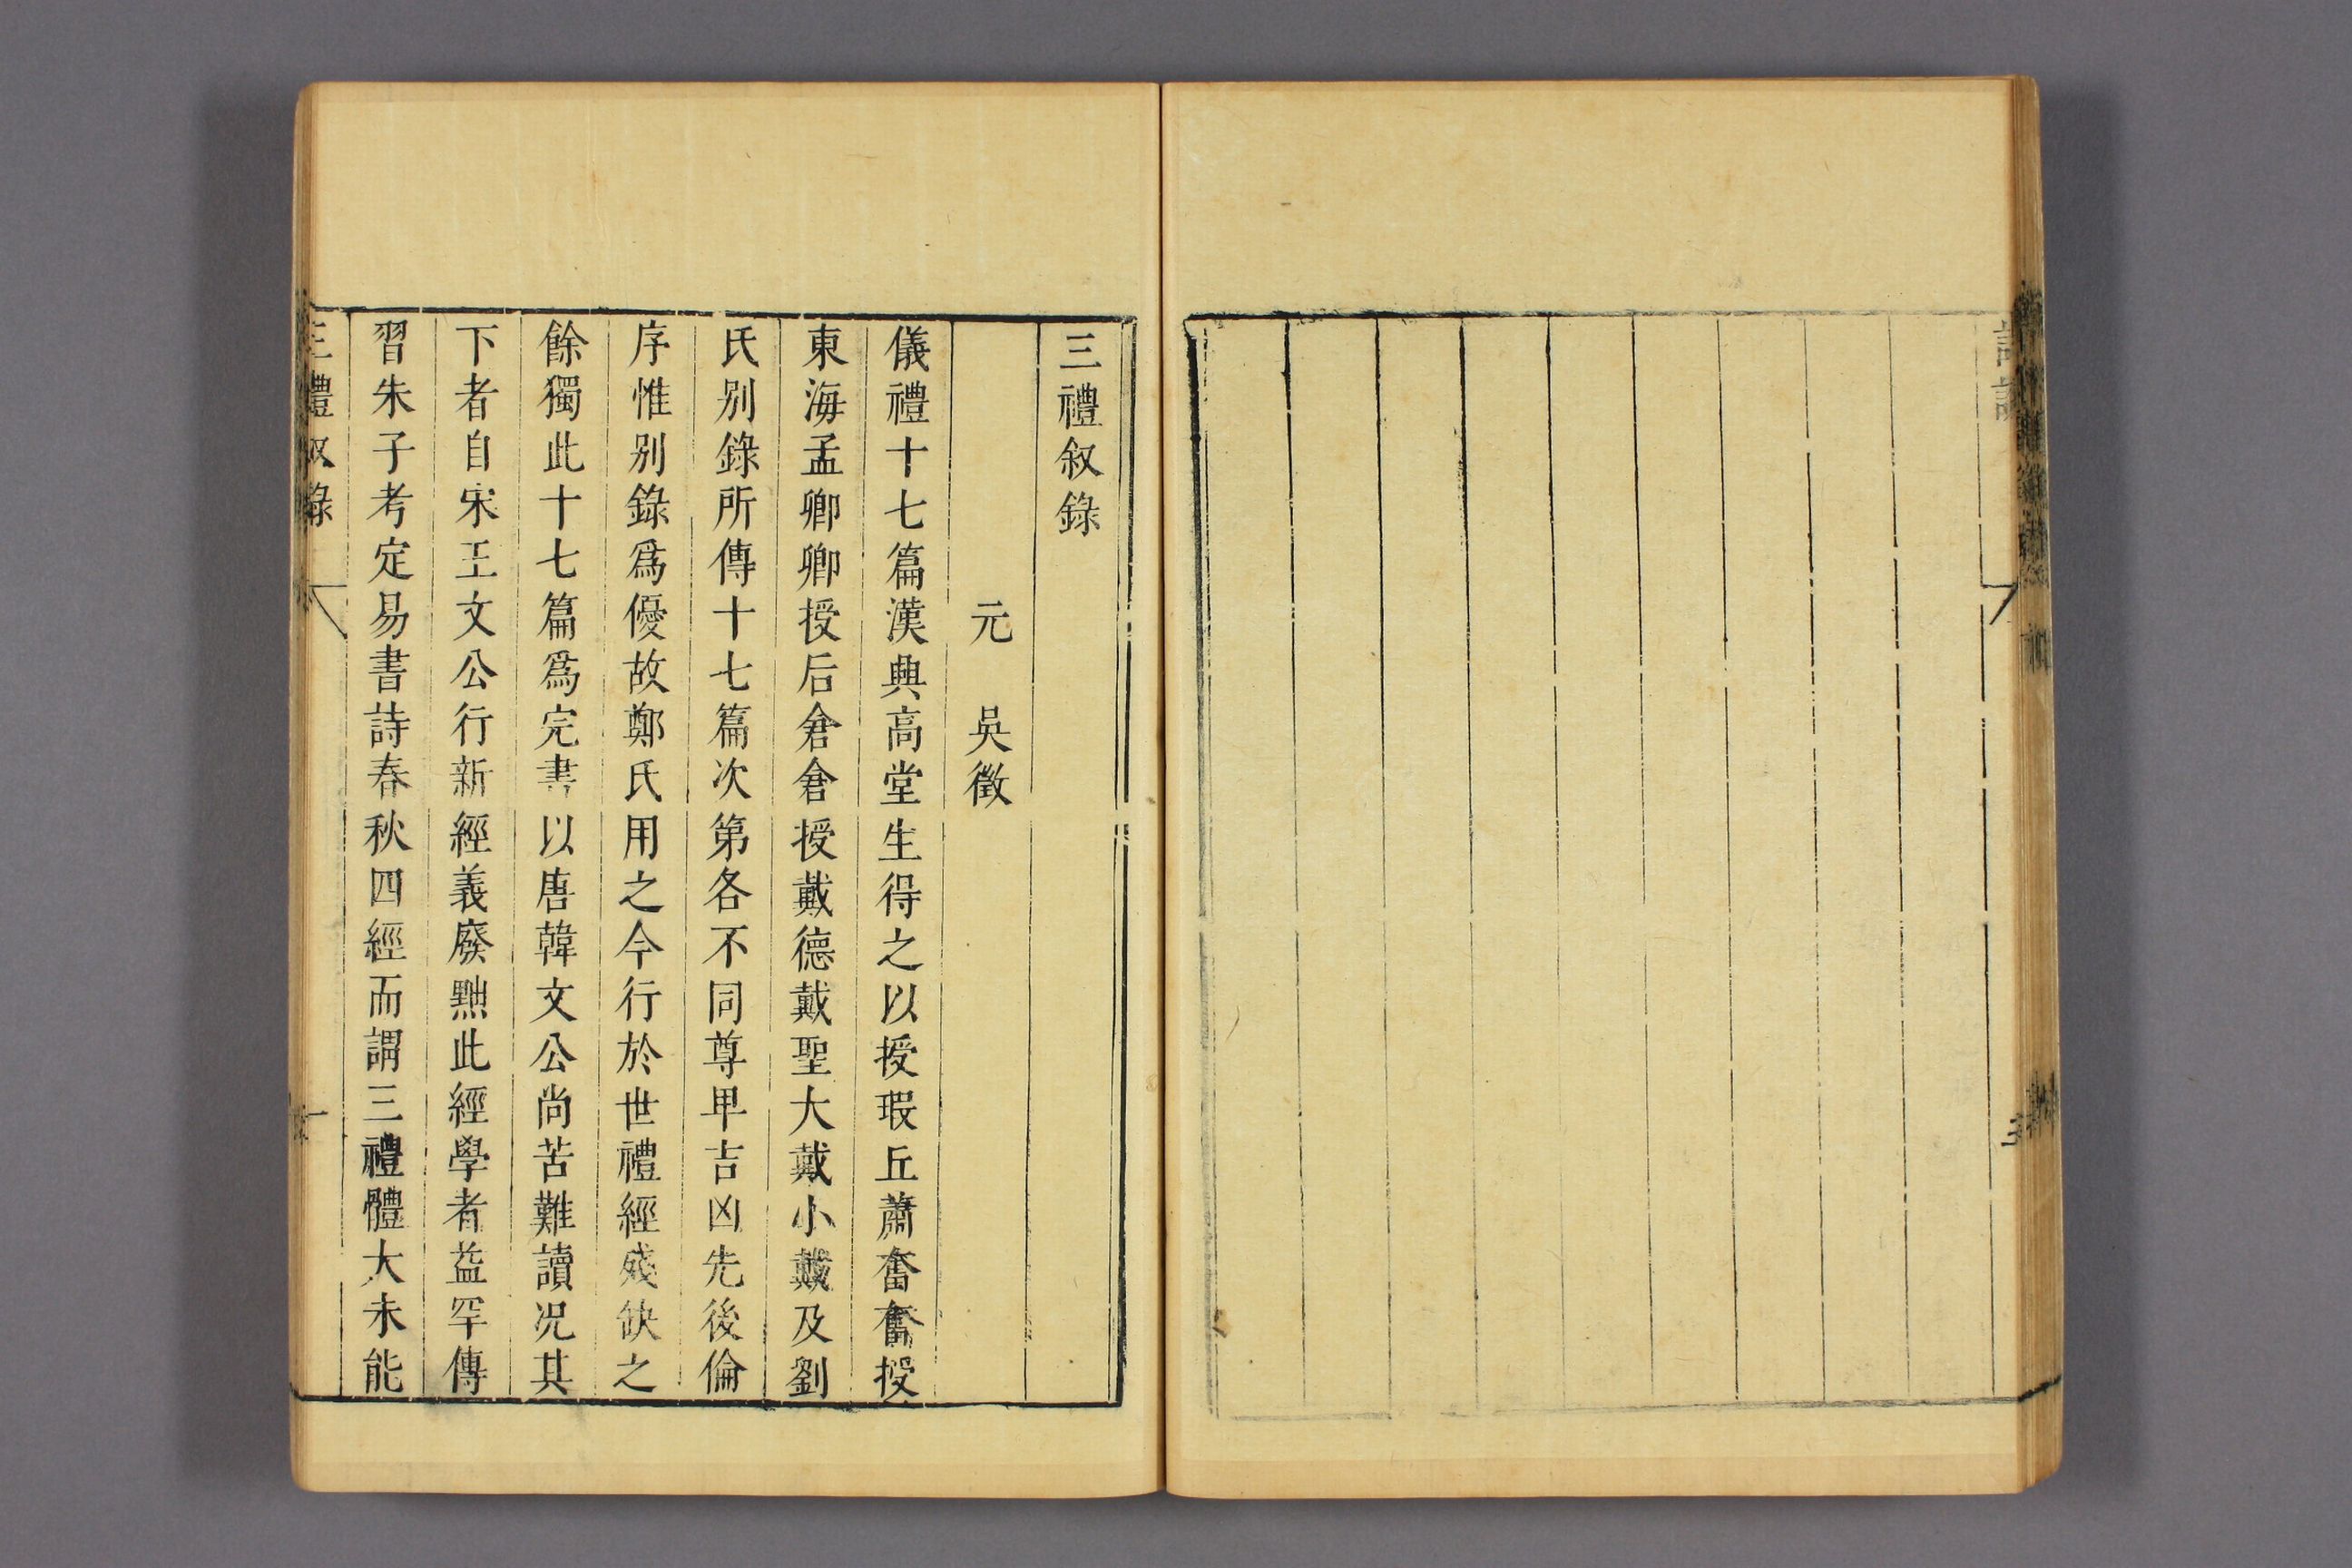 三禮叙錄
元 吳徵
儀禮十七篇漢興高堂生得之以授瑕丘蕭奮奮授
東海孟卿卿授后倉倉授戴德戴聖大戴小戴及劉
氏别錄所傳十七篇次第各不同尊卑吉凶先後倫
序惟别錄爲優故鄭氏用之今行於世禮經殘缺之
餘獨此十七篇爲完書以唐韓文公尚苦難讀况其
下者自宋王文公行新經義廢黜此經學者益罕傳
習朱子考定易書詩春秋四經而謂三禮體大未能
三禮叙錄 一